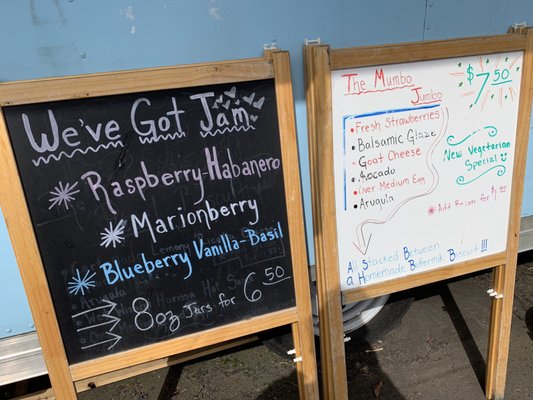 We've Got Jam
Raspberry-Habanero
Marionberry
Blueberry Vanilla-Basil
8oz Jars for 6.50
The Mumbo
Jumbo
$7.50
Fresh Strawberries
Balsamic Glaze
Goat Cheese
Avocado
Over Medium Egg
Arugula
New Vegetarian
Special
Add Bacon for $1.50
All Stacked Between
a Homemade Buttermilk Biscuit!!!